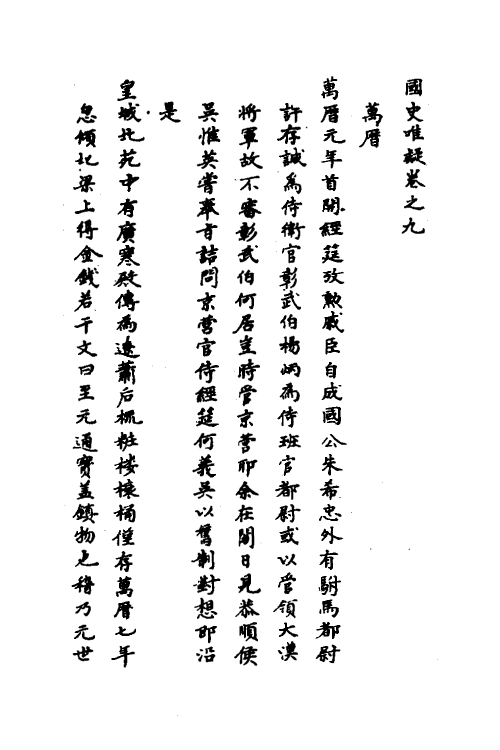 國史唯疑卷之九
萬曆
萬曆元年首開經筵攷勲戚臣自成國公朱希忠外有駙馬都尉
許存誠為侍衛官彰武伯楊炳為侍班官都尉或以管領大漢
將軍故不審彰武伯何居豈時管京營耶余在閣日見恭順侯
吳惟英嘗奉旨詰問京營官侍經筵何義吳以舊制對想即沿
是
皇城北苑中有廣寒殿傳為遼蕭后梳粧楼榱桷僅存萬曆七年
忽傾圮梁上得金錢若干文曰至元通寶盖鎮物也稽乃元世